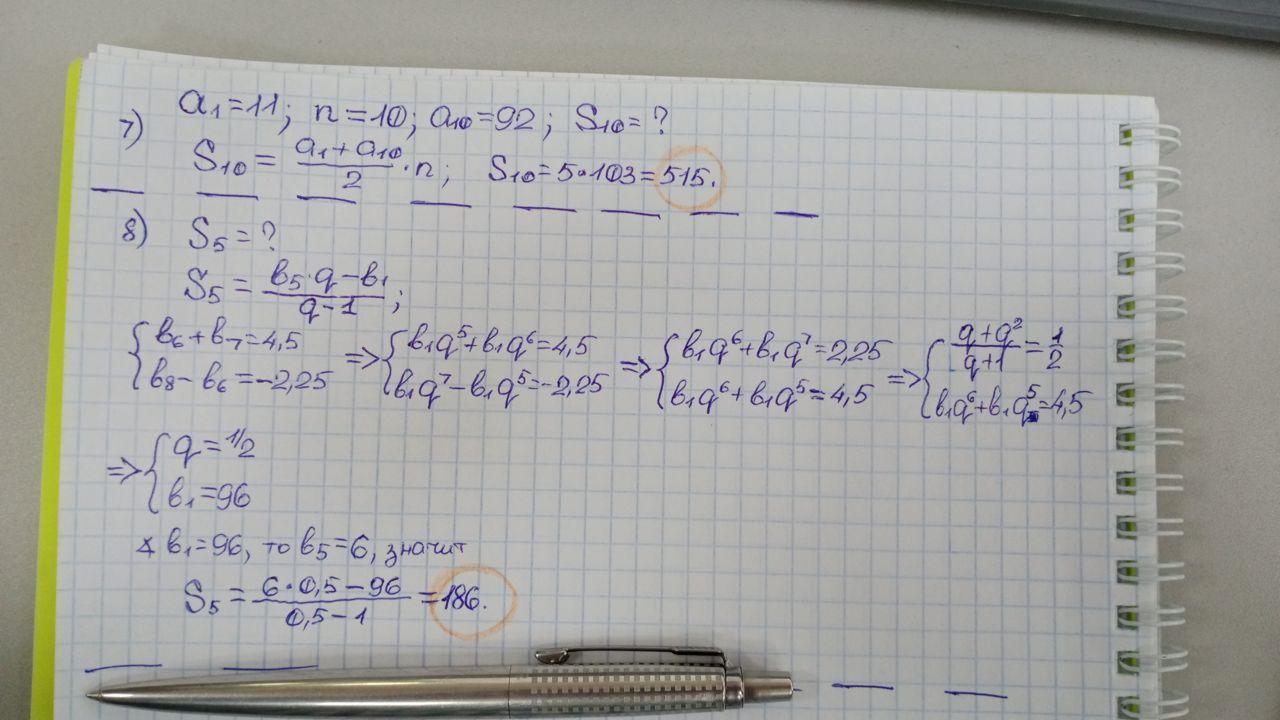 7) a₁=11; n=10; a₁₀=92; S₁₀=?
S₁₀ = (a₁+a₁₀)/2 · n; S₁₀=5·103=515.
8) S₅=?
S₅ = (b₅·q−b₁)/(q−1);
{b₆+b₇=4,5 => {b₁q⁵+b₁q⁶=4,5 => {b₁q⁶+b₁q⁷=2,25 => {(q+q²)/(q+1)=1/2
{b₈−b₆=−2,25 {b₁q⁷−b₁q⁵=−2,25 {b₁q⁶+b₁q⁵=4,5 {b₁q⁶+b₁q⁵=4,5
=> {q=1/2
{b₁=96
∡ b₁=96, то b₅=6, значит
S₅ = (6·0,5−96)/(0,5−1) =186.